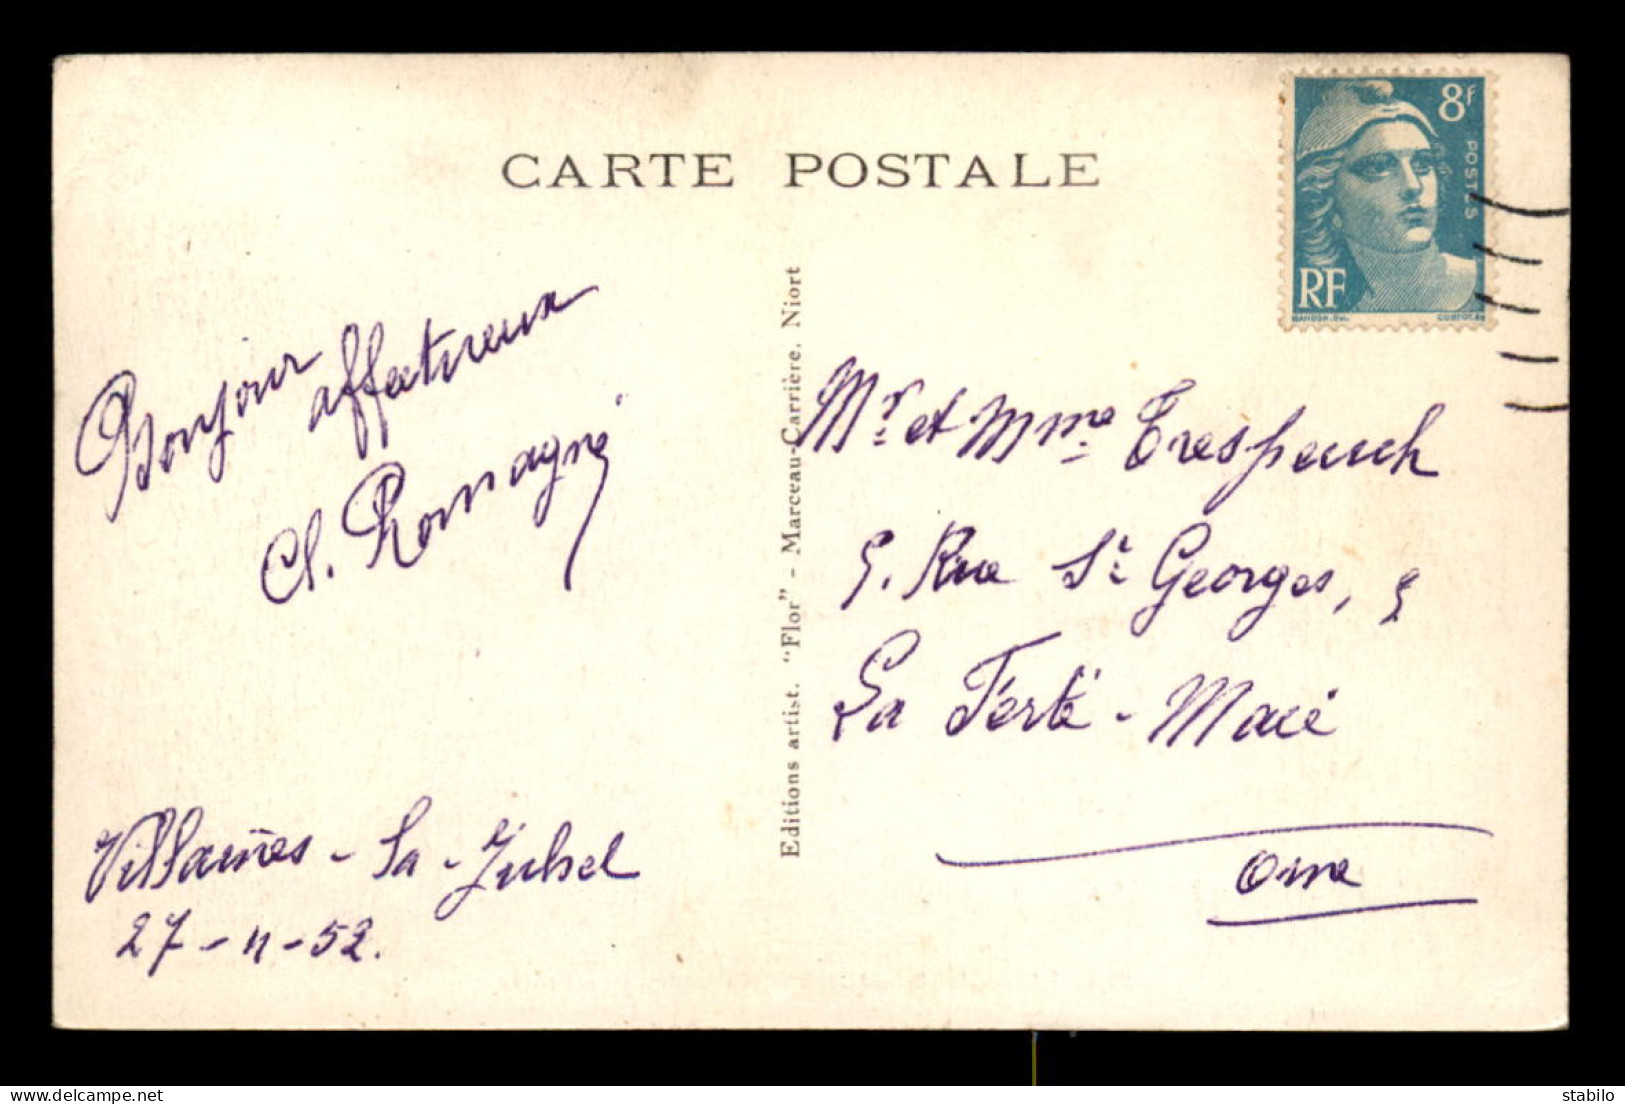 CARTE POSTALE
8F
POSTES
RF
Bonjour
affectueux
Cl. Romagné
Villaines-la-Juhel
27-11-52.
Editions artist. "Flor" - Marceau-Carrière, Niort
Mr. et Mme
5. Rue St Georges, 5
La Ferté-Macé
Orne
delcampe.net
stabilo